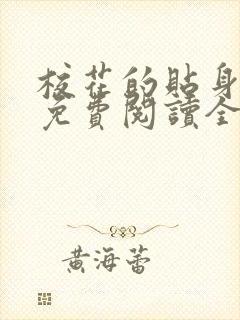 校花的貼身
免費閱讀全
黃海蕾